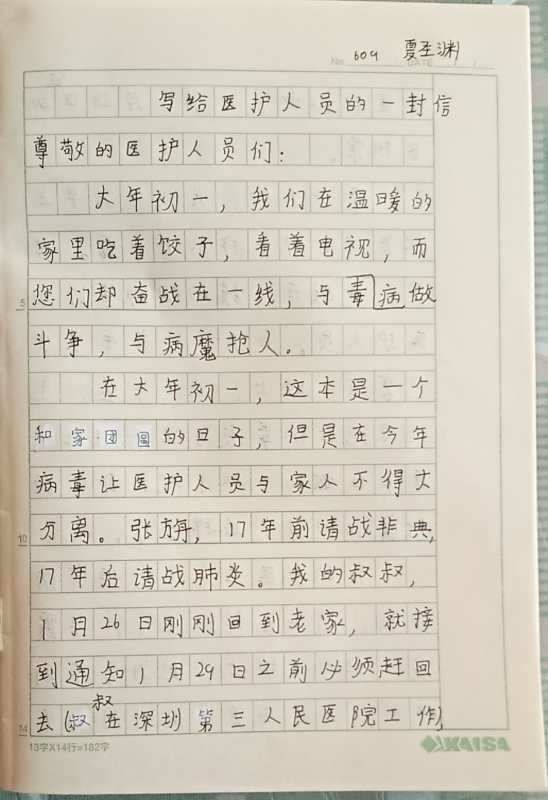 No 609 夏至渊
DATE / /
写给医护人员的一封信
尊敬的医护人员们：
大年初一，我们在温暖的
家里吃着饺子，看着电视，而
5 您们却奋战在一线，与毒病做
斗争，与病魔抢人。
在大年初一，这本是一个
和家团圆的日子，但是在今年
病毒让医护人员与家人不得丈
10 分离。张旃，17年前请战非典，
17年后请战肺炎。我的叔叔，
1月26日刚刚回到老家，就接
到通知1月29日之前必须赶回
14 去（叔叔在深圳第三人民医院工作）
13字X14行=182字 KAISA